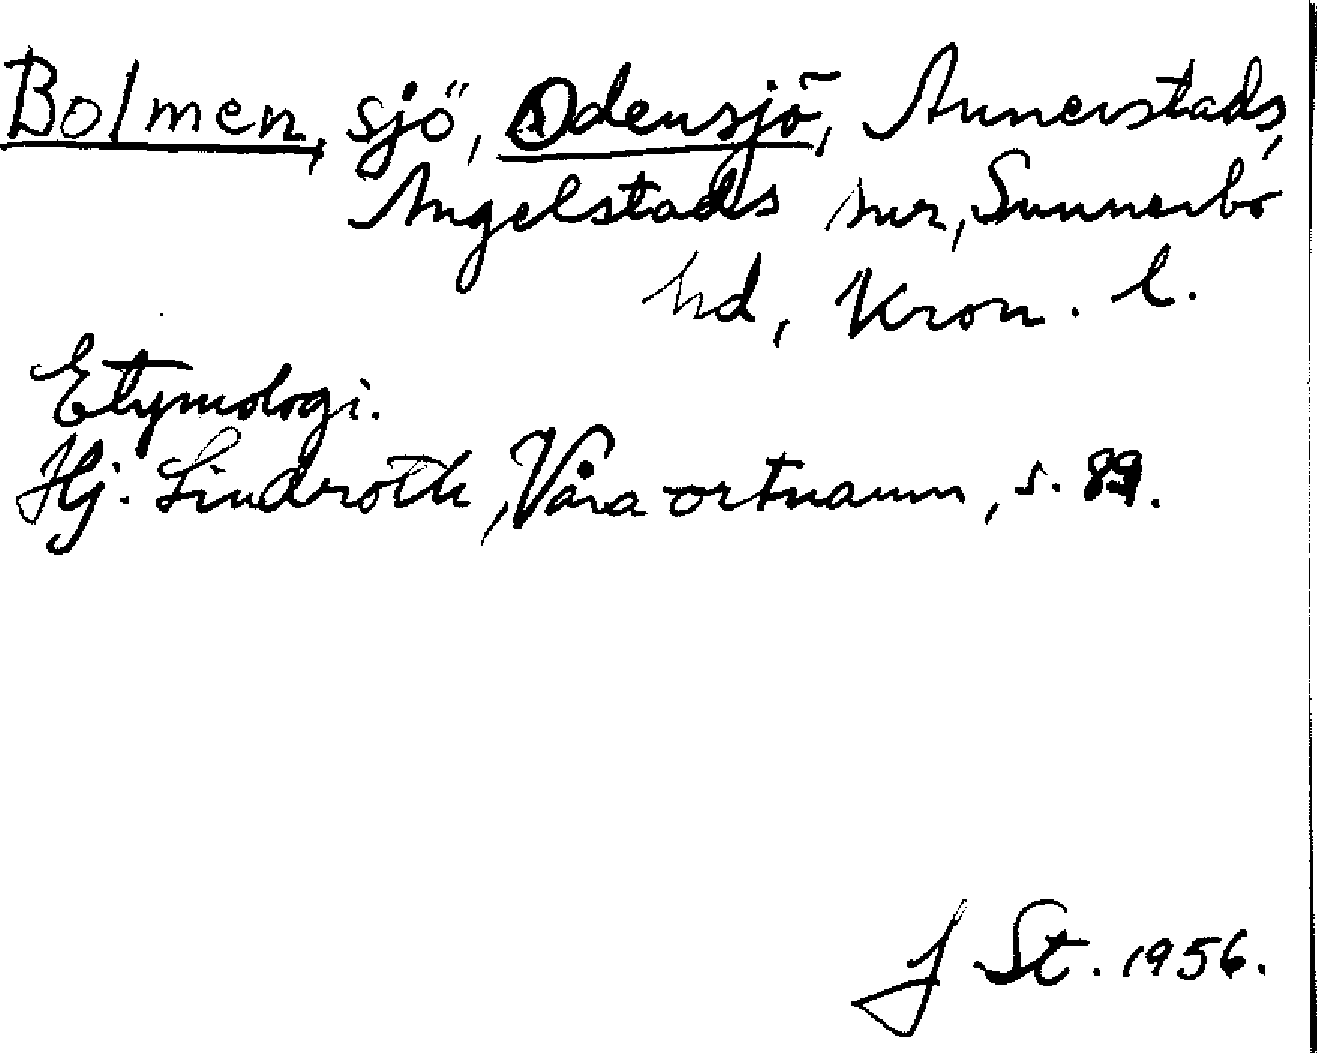 Bolmen, sjö, Odensjö, Annerstads,
Angelstads snr, Sunnerbo
hd, Kron. l.
Etymologi.
Hj. Lindroth, Våra ortnamn, s. 89.
J St. 1956.